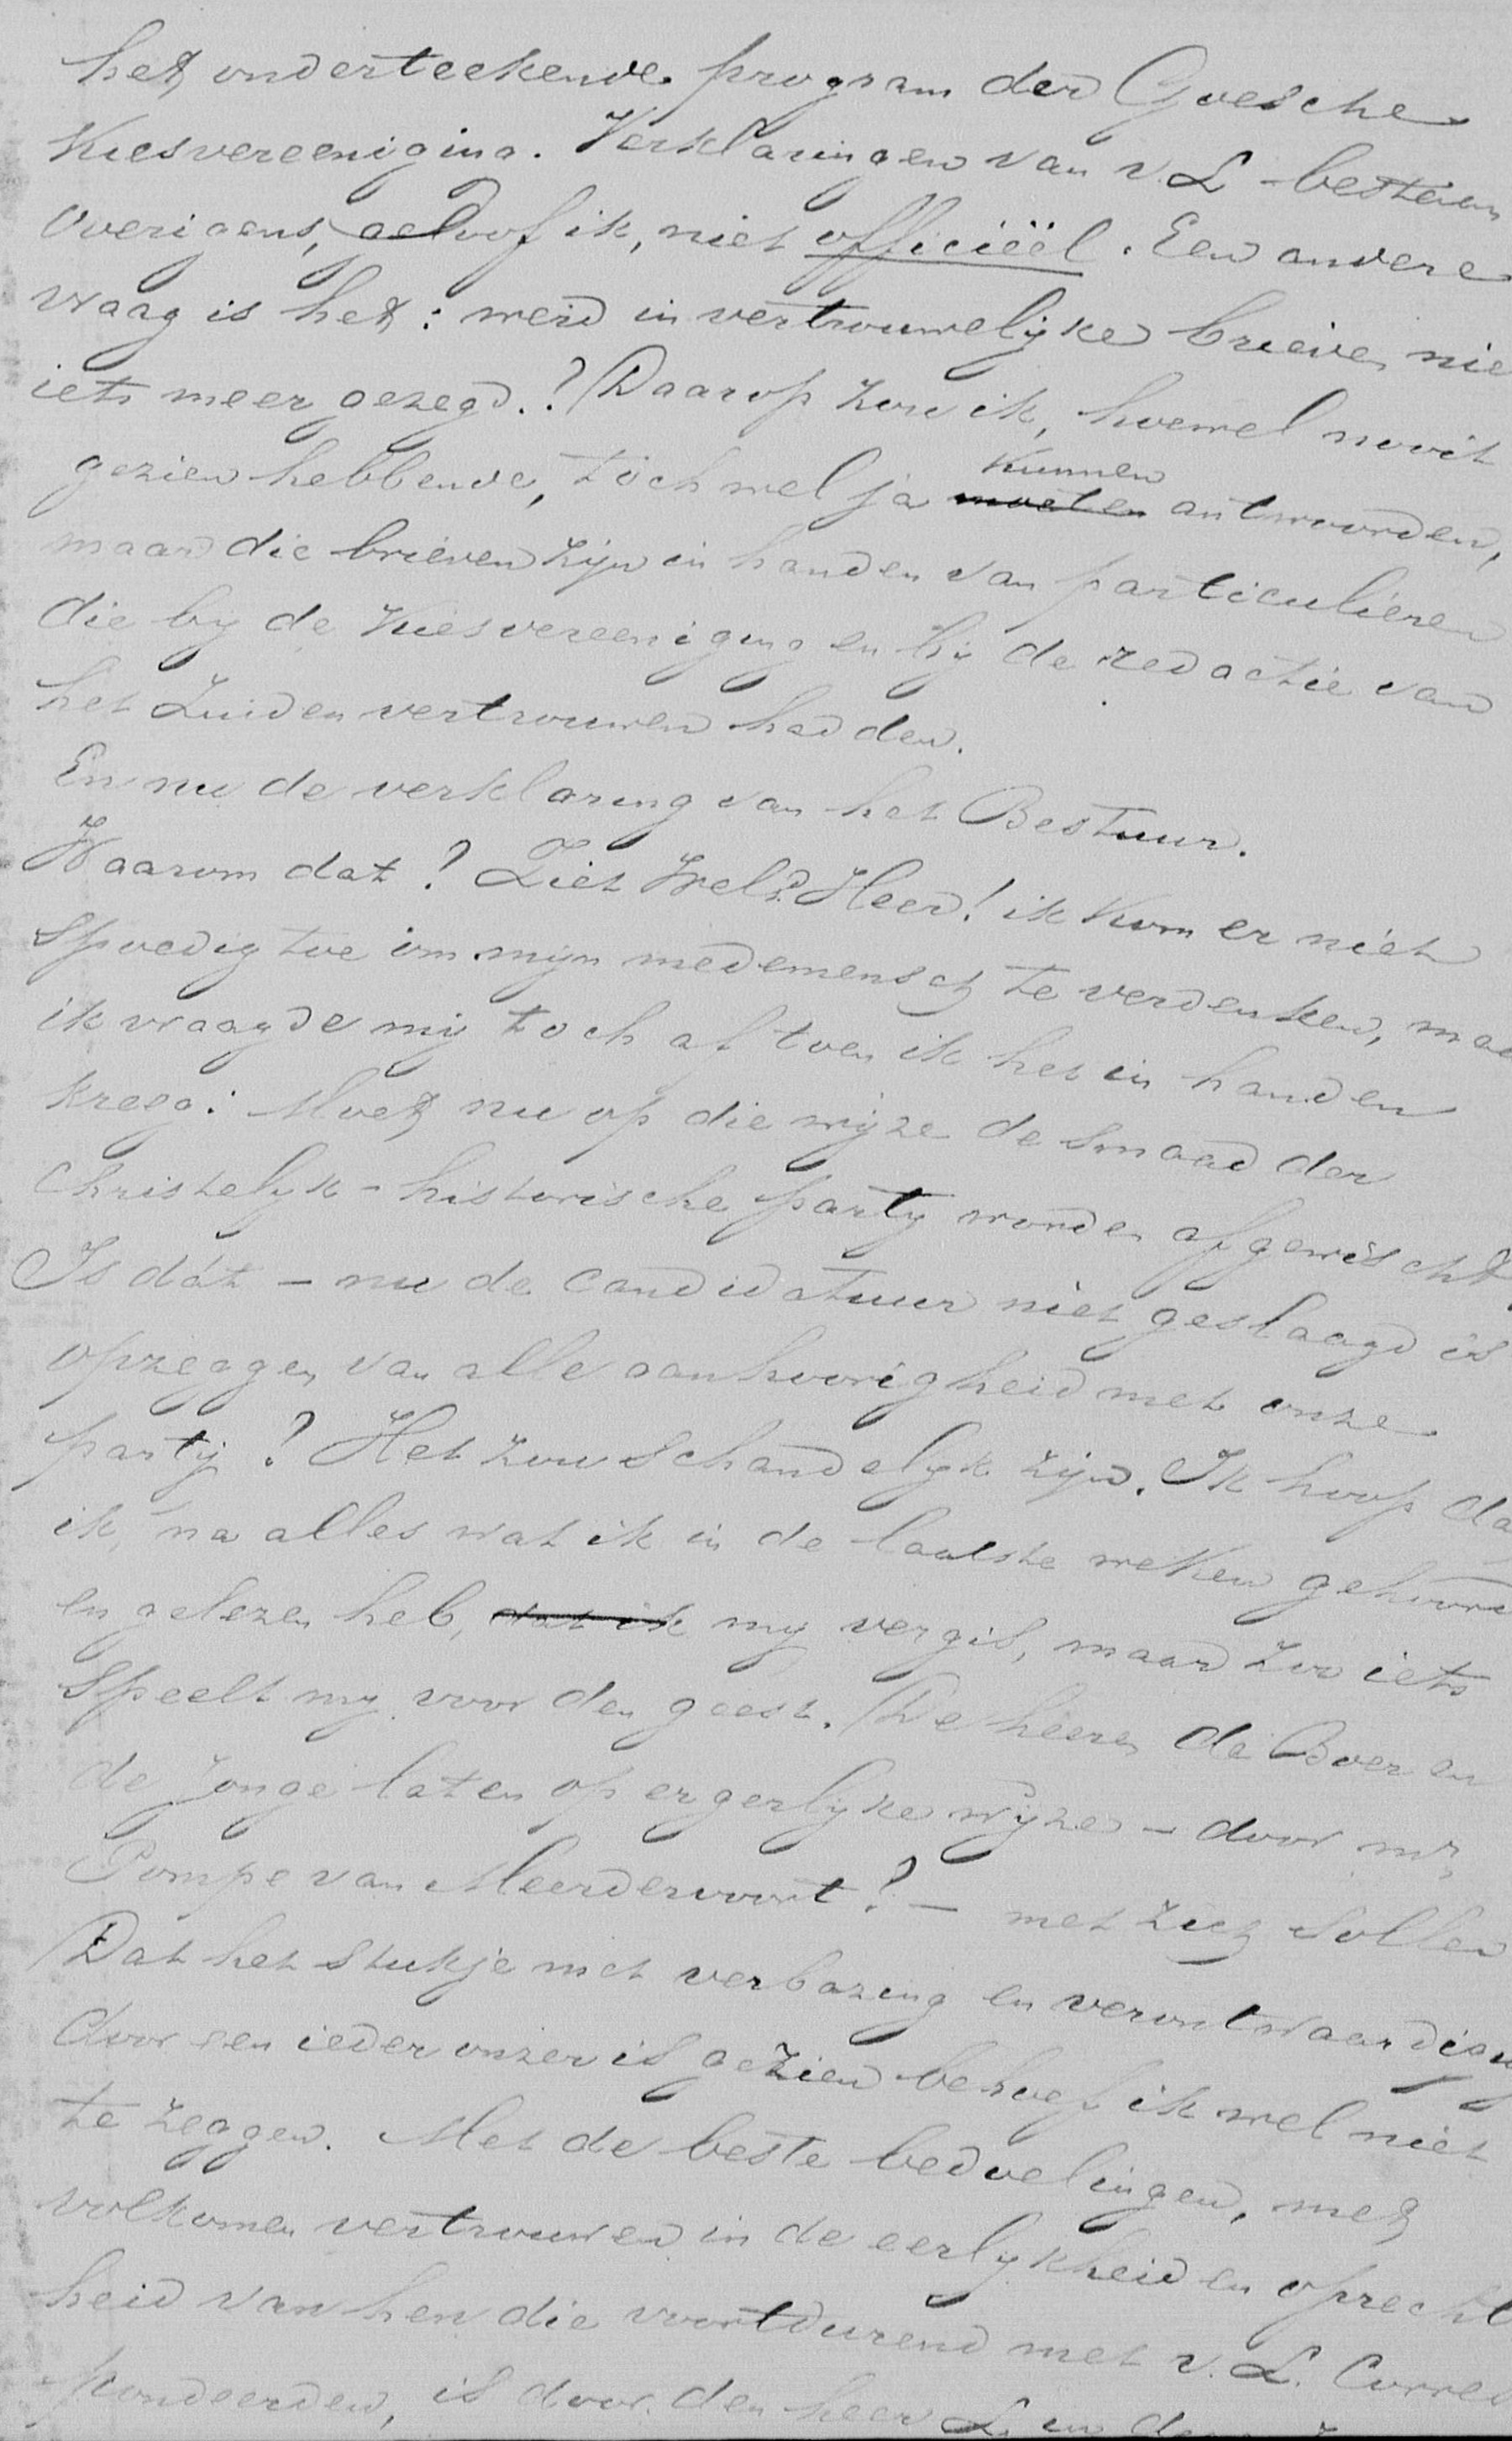 het onderteekende program der Goesche
Kiesvereeniging. Verklaringen van v. L - bestaan
overigens, geloof ik, niet officiëel. Een andere
vraag is het: werd in vertrouwelijke brieven nie
iets meer gezegd.? Daarop zou ik, hoewel nooit
kunnen
gezien hebbende, toch wel ja moeten antwoorden,
maar die brieven zijn in handen van particulieren
die bij de Kiesvereeniging en bij de redactie van
het Zuiden vertrouwen hadden.
En nu de verklaring van het Bestuur.
Waarom dat? Ziet WelEd. Heer! ik kom er niet
spoedig toe om mijn medemensch te verdenken, maa
ik vraagde mij toch af toen ik het in handen
kreeg: Moet nu op die wijze de smaad der
Christelijk-historische partij worden afgewischt?
Is dát - nu de candidatuur niet geslaagd is
opzeggen van alle aanhoorigheid met onze
partij? Het zou schandelijk zijn. Ik hoop da
ik, na alles wat ik in de laatste weken gehoord
en gelezen heb, dat ik mij vergis, maar zoo iets
speelt mij voor den geest. De heeren de Boer en
de Jonge laten op ergerlijke wijze - door mr.
Pompe van Meerdervoort? - met zich sollen
Dat het stukje met verbazing en verontwaardiging
door een ieder onzer is gezien behoef ik wel niet
te zeggen. Met de beste bedoelingen, met
volkomen vertrouwen in de eerlijkheid en oprecht
heid van hen die voortdurend met v. L. Corres
pondeerden, is door den heer L. en